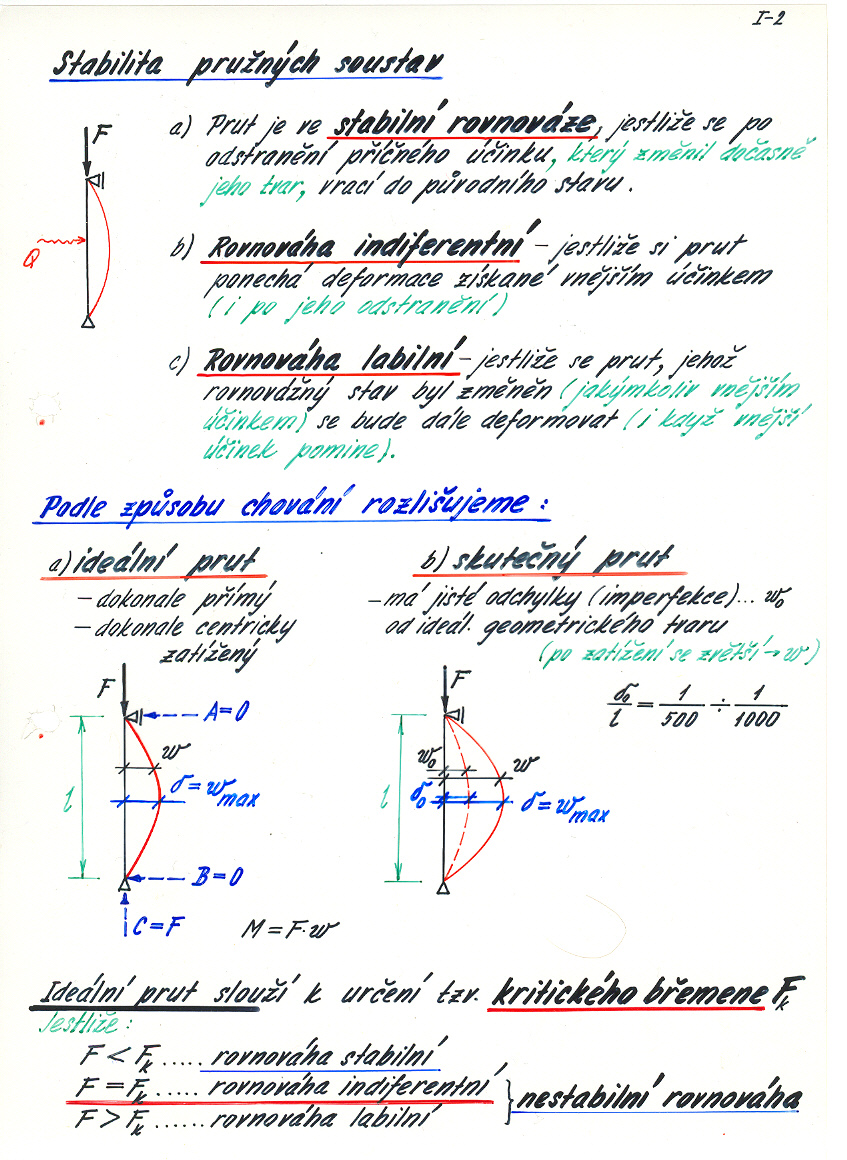 I-2
Stabilita pružných soustav
F
Q
a) Prut je ve stabilní rovnováze, jestliže se po
odstranění příčného účinku, který změnil dočasně
jeho tvar, vrací do původního stavu.
b) Rovnováha indiferentní – jestliže si prut
ponechá deformace získané vnějším účinkem
(i po jeho odstranění)
c) Rovnováha labilní – jestliže se prut, jehož
rovnovážný stav byl změněn (jakýmkoliv vnějším
účinkem) se bude dále deformovat (i když vnější
účinek pomine).
Podle způsobu chování rozlišujeme :
a) ideální prut
– dokonale přímý
– dokonale centricky
zatížený
F
A=0
w
δ = w max
l
B=0
C=F
M = F·w
b) skutečný prut
– má jisté odchylky (imperfekce)... w₀
od ideál. geometrického tvaru
(po zatížení se zvětší → w)
δ₀/l = 1/500 ÷ 1/1000
F
w₀
w
δ₀
δ = w max
l
Ideální prut slouží k určení tzv. kritického břemene Fk
Jestliže :
F < Fk ..... rovnováha stabilní
F = Fk ..... rovnováha indiferentní
F > Fk ...... rovnováha labilní
} nestabilní rovnováha